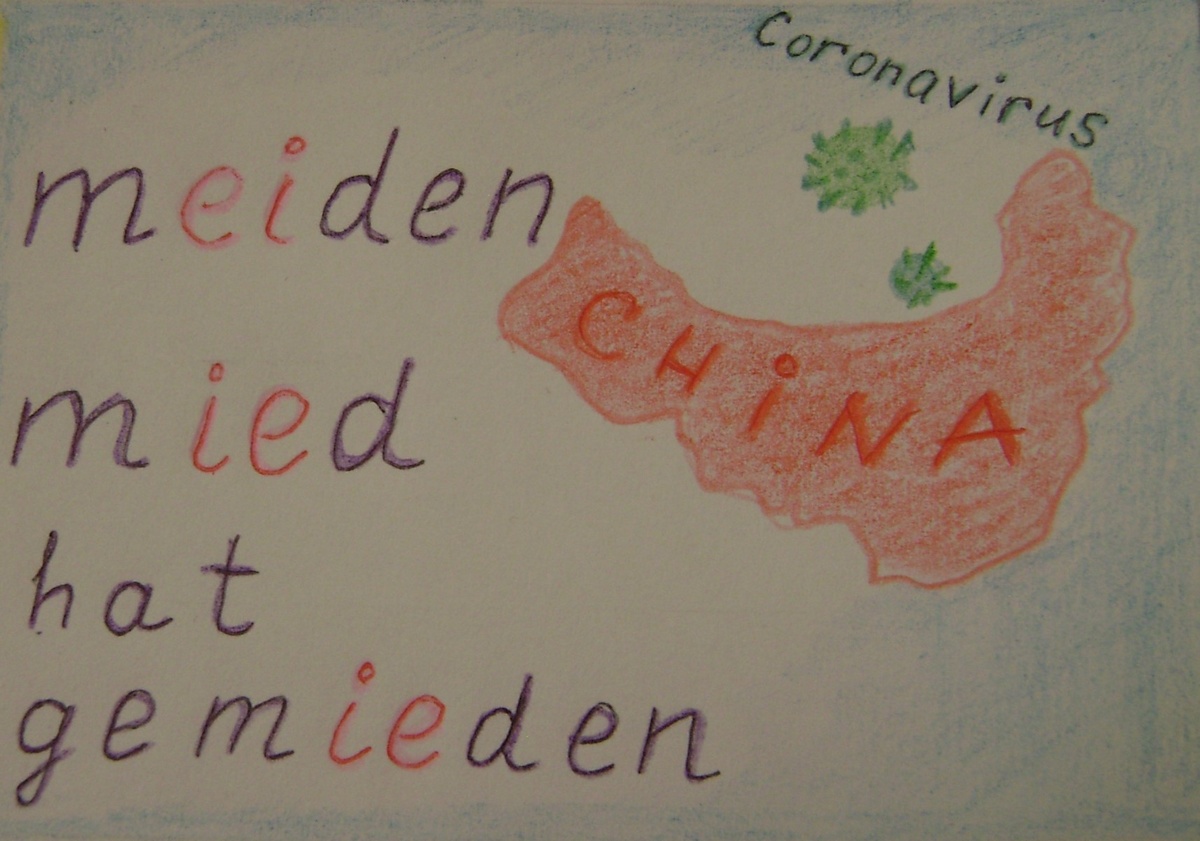 Coronavirus
meiden
CHiNA
mied
hat
gemieden